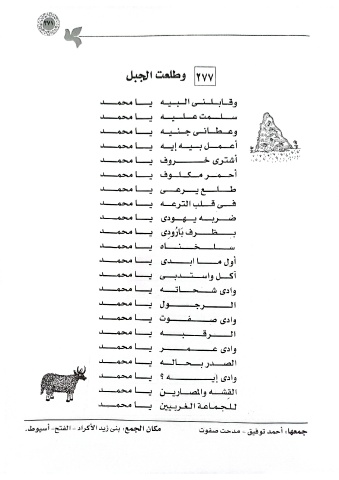 ٢٧٨
٢٧٧ وطلعت الجبل
وقابلنى البيه يا محمد
سلمت عليه يا محمد
وعطانى جنيه يا محمد
أعمل بيه إيه يا محمد
أشترى خروف يا محمد
أحمر مكلوف يا محمد
طلع يرعى يا محمد
فى قلب الترعه يا محمد
ضربه يهودى يا محمد
بظرف بارودى يا محمد
سلخناه يا محمد
أول ما ابدى يا محمد
أكل واستدبى يا محمد
وادى شحاته يا محمد
الرجول يا محمد
وادى صفوت يا محمد
الرقبه يا محمد
وادى عمر يا محمد
الصدر بحاله يا محمد
وادى إيه ؟ يا محمد
القشه والمصارين يا محمد
للجماعة الغربيين يا محمد
جمعها: أحمد توفيق - مدحت صفوت مكان الجمع: بنى زيد الأكراد - الفتح - أسيوط.